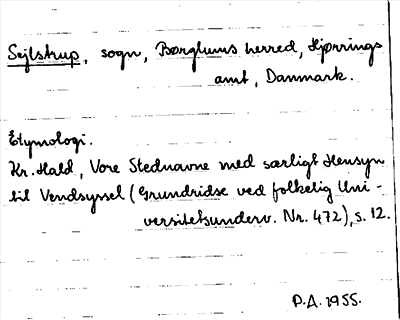 Sejlstrup, sogn, Børglums herred, Hjørrings
amt, Danmark.
Etymologi.
Kr. Hald, Vore Stednavne med særligt Hensyn
til Vendsyssel (Grundridse ved folkelig Uni-
versitetsunderv. Nr. 472), s. 12.
P.A. 1955.